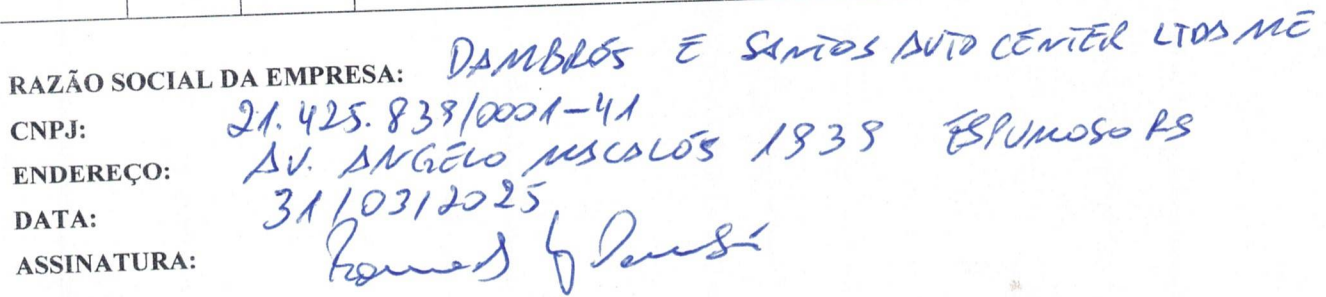 RAZÃO SOCIAL DA EMPRESA: DAMBRÓS E SANTOS AUTO CENTER LTDA ME
CNPJ: 21.425.839/0001-41
ENDEREÇO: AV. ANGELO MACALÓS 1939 ESPUMOSO RS
DATA: 31/03/2025
ASSINATURA: